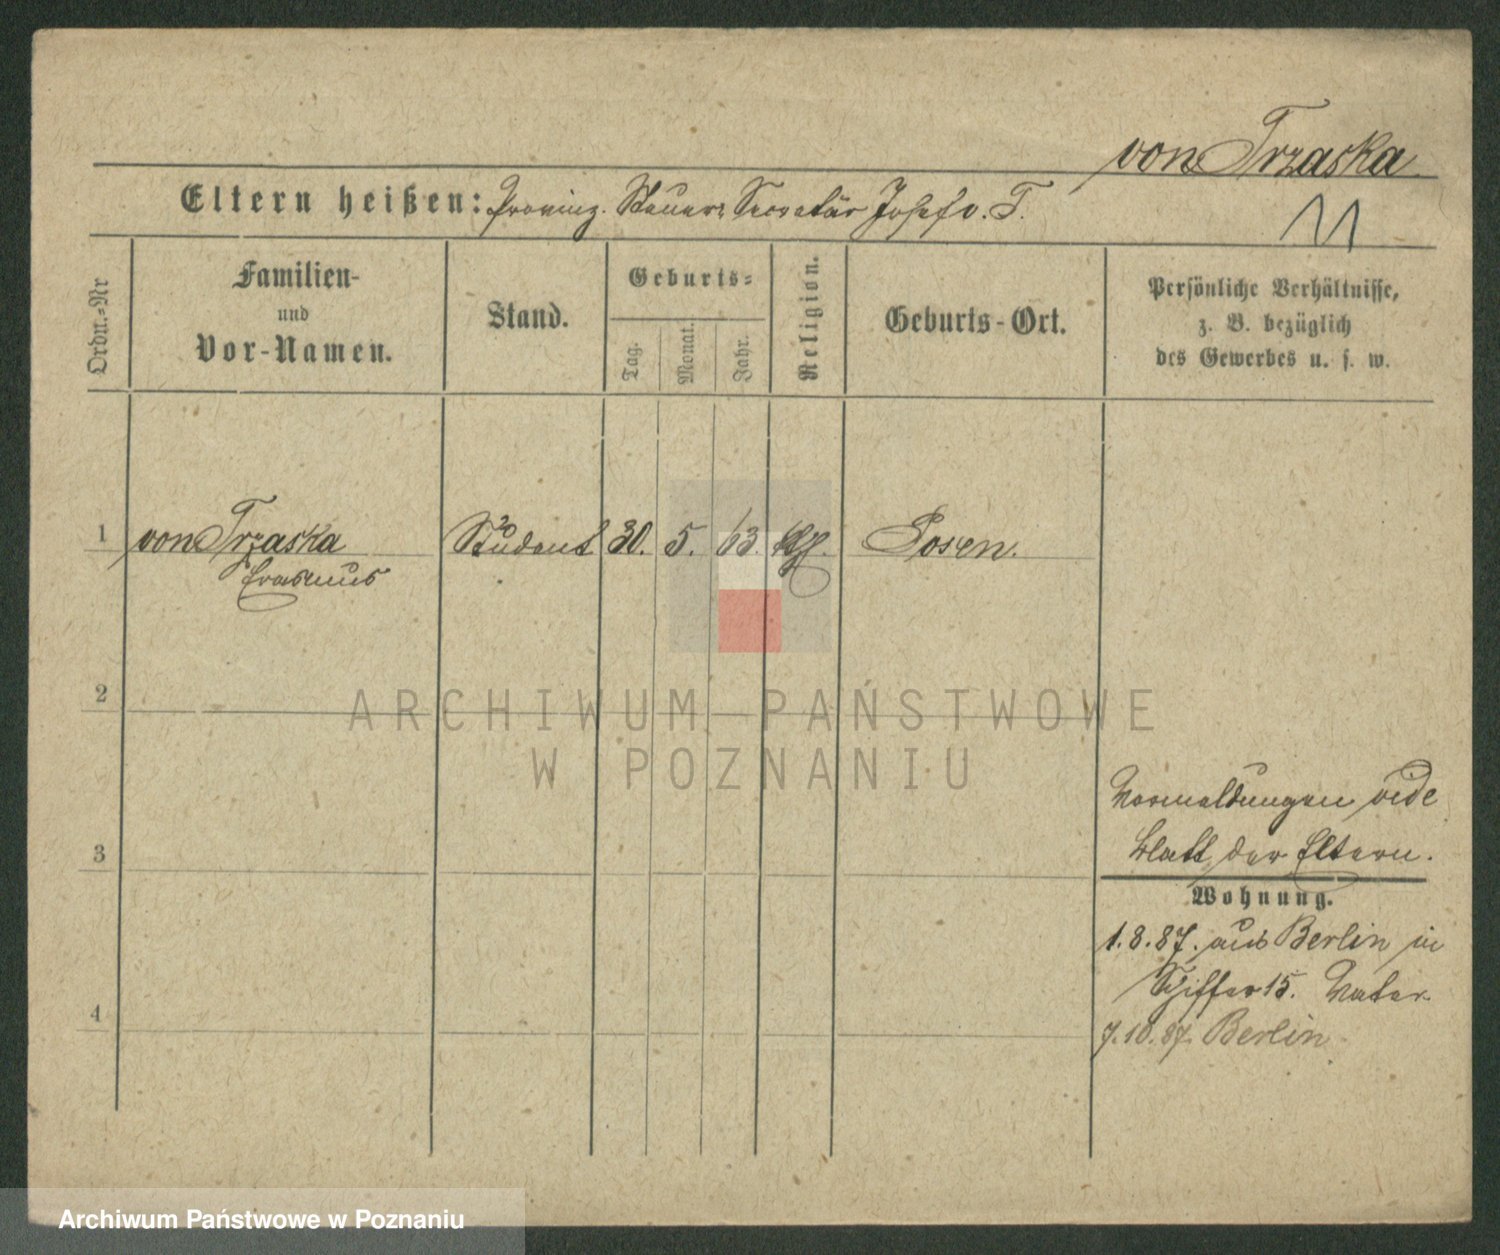 von Trzaska
Eltern heißen: Proving. Steuer Secretär Josef v. T.
Ordn.-Nr
Familien-
und
Vor-Namen.
Stand.
Geburts-
Tag.
Monat.
Jahr.
Religion.
Geburts-Ort.
Persönliche Verhältnisse,
z. B. bezüglich
des Gewerbes u. s. w.
1 von Trzaska Student 30. 5. 63. Posen.
Erasmus
2
ARCHIWUM PAŃSTWOWE
W POZNANIU
Vormeldungen vide
3 Blatt der Eltern.
Wohnung.
1.8.87. aus Berlin in
Schiffer 15. Vater
4 7.10.87. Berlin
Archiwum Państwowe w Poznaniu